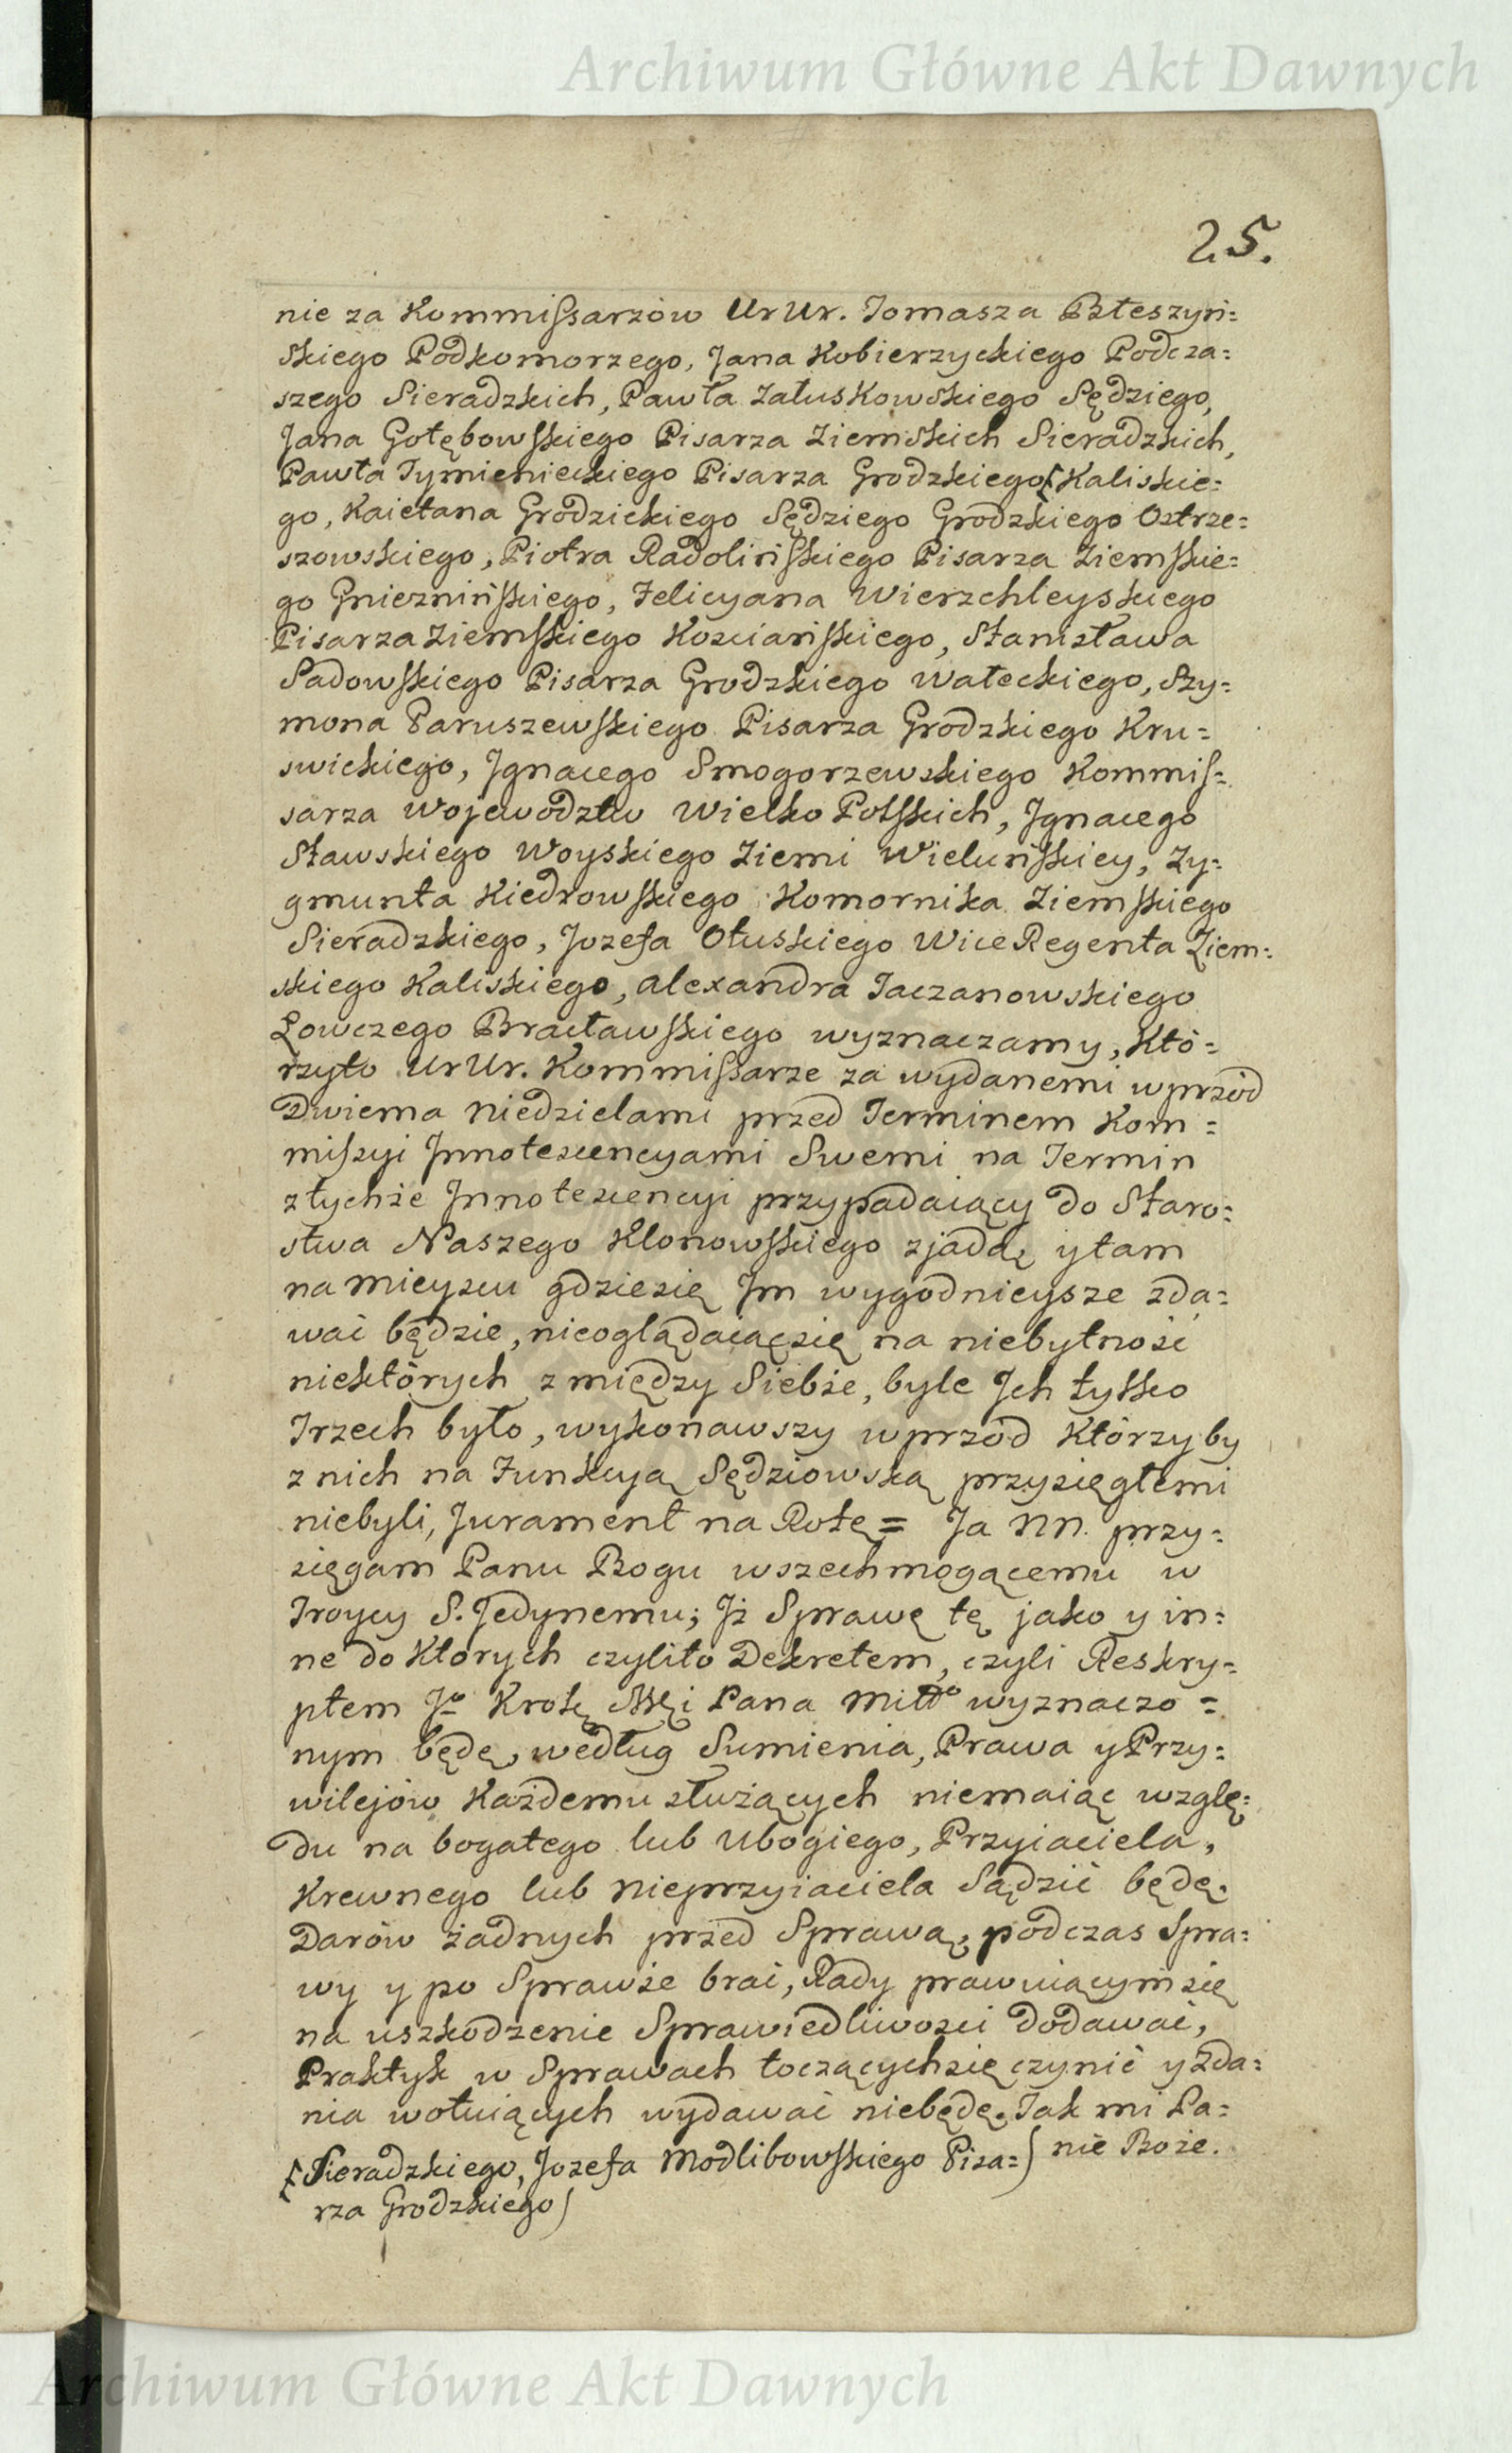 Archiwum Główne Akt Dawnych
25.
nie za Kommissarzów Ur Ur. Tomasza Błeszyń=
skiego Podkomorzego, Jana Kobierzyckiego Podcza=
szego Sieradzkich, Pawła Załuskowskiego Sędziego,
Jana Gołębowskiego Pisarza Ziemskich Sieradzkich,
Pawła Tymienieckiego Pisarza Grodzkiego [Kaliskie=
go, Kaietana Grodzickiego Sędziego Grodzkiego Ostrze=
szowskiego, Piotra Radolińskiego Pisarza Ziemskie=
go Gniezninskiego, Felicyana Wierzchleyskiego
Pisarza Ziemskiego Kosciańskiego, Stanisława
Sadowskiego Pisarza Grodzkiego Wałeckiego, Szy=
mona Paruszewskiego Pisarza Grodzkiego Kru=
swickiego, Jgnacego Smogorzewskiego Kommis=
sarza Wojewodztw Wielko Polskich, Jgnacego
Stawskiego Woyskiego Ziemi Wieluńskiey, Zy=
gmunta Kiedrowskiego Komornika Ziemskiego
Sieradzkiego, Jozefa Ołuskiego Wice Regenta Ziem=
skiego Kaliskiego, Alexandra Taczanowskiego
Łowczego Bracławskiego wyznaczamy, Któ=
rzyto Ur Ur. Kommissarze za wydanemi wprzód
Dwiema Niedzielami przed Terminem Kom=
missyi Jnnotescencyami Swemi na Termin
z tychże Jnnotescencyi przypadaiący do Staro=
stwa Naszego Klonowskiego zjadą y tam
na mieyscu gdzie się Jm wygodnieysze zda=
wać będzie, nieoglądaiąc się na niebytność
niektórych z między Siebie, byle Jch tylko
Trzech było, wykonawszy wprzód Którzyby
z nich na Funkcyą Sędziowską przysięgłemi
niebyli, Jurament na Rotę = Ja NN. przy=
sięgam Panu Bogu wszechmogącemu w
Troycy S. Jedynemu; Jż Sprawę tę jako y in=
ne do Których czyli to Dekretem, czyli Reskry=
ptem Jo Krolę Mści Pana Miłgo wyznaczo=
nym będę, według Sumienia, Prawa y Przy=
wilejów Każdemu służących niemaiąc wzglę=
du na bogatego lub Ubogiego, Przyiaciela,
Krewnego lub Nieprzyiaciela Sądzić będę.
Darów żadnych przed Sprawą, podczas Spra=
wy y po Sprawie brać, Rady prawuiącym się
na uszkodzenie Sprawiedliwosci Dodawać,
Praktyk w Sprawach toczących się czynić y Zda=
nia wotuiących wydawać niebędę. Tak mi Pa=
nie Boże.
[Sieradzkiego, Jozefa Modlibowskiego Pisa=
rza Grodzkiego)
Archiwum Główne Akt Dawnych